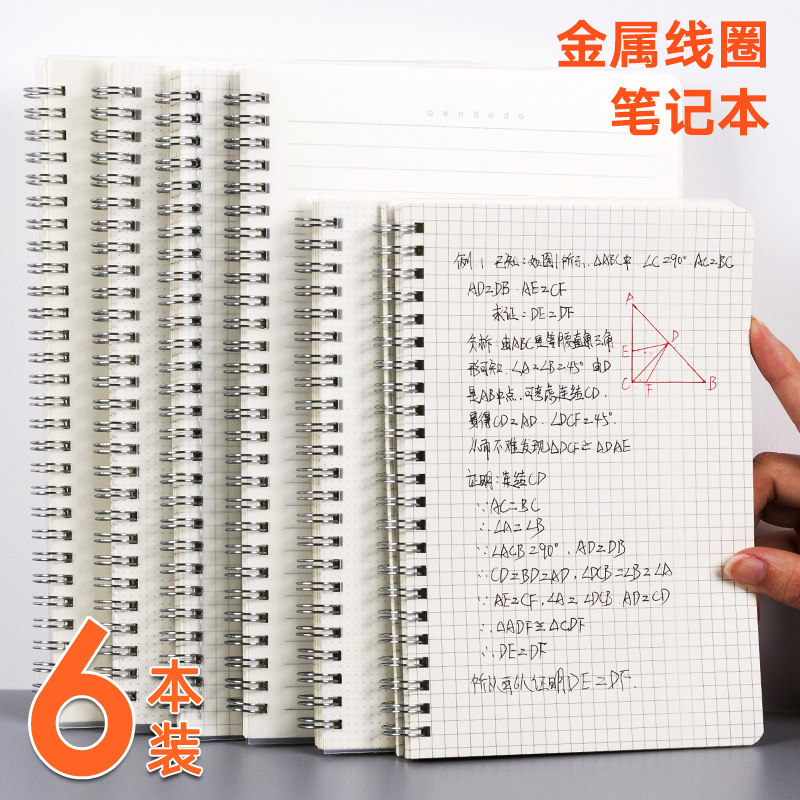 金属线圈
笔记本
bendodo
例1 已知:如图1所示,△ABC中 ∠C=90° AC=BC
AD=DB AE=CF
求证:DE=DF
分析:由ABC是等腰直角三角
形可知,∠A=∠B=45° 由D
是AB中点,可考虑连结CD,
易得CD=AD ∠DCF=45°.
从而不难发现△DCF≅△DAE
证明:连结CD
∵AC=BC
∴∠A=∠B
∵∠ACB=90°,AD=DB
∴CD=BD=AD,∠DCB=∠B=∠A
∵AE=CF,∠A=∠DCB AD=CD
∴△ADF≅△CDF
∴DE=DF
所以可以证明DE=DF.
A
D
E
C F B
6本装